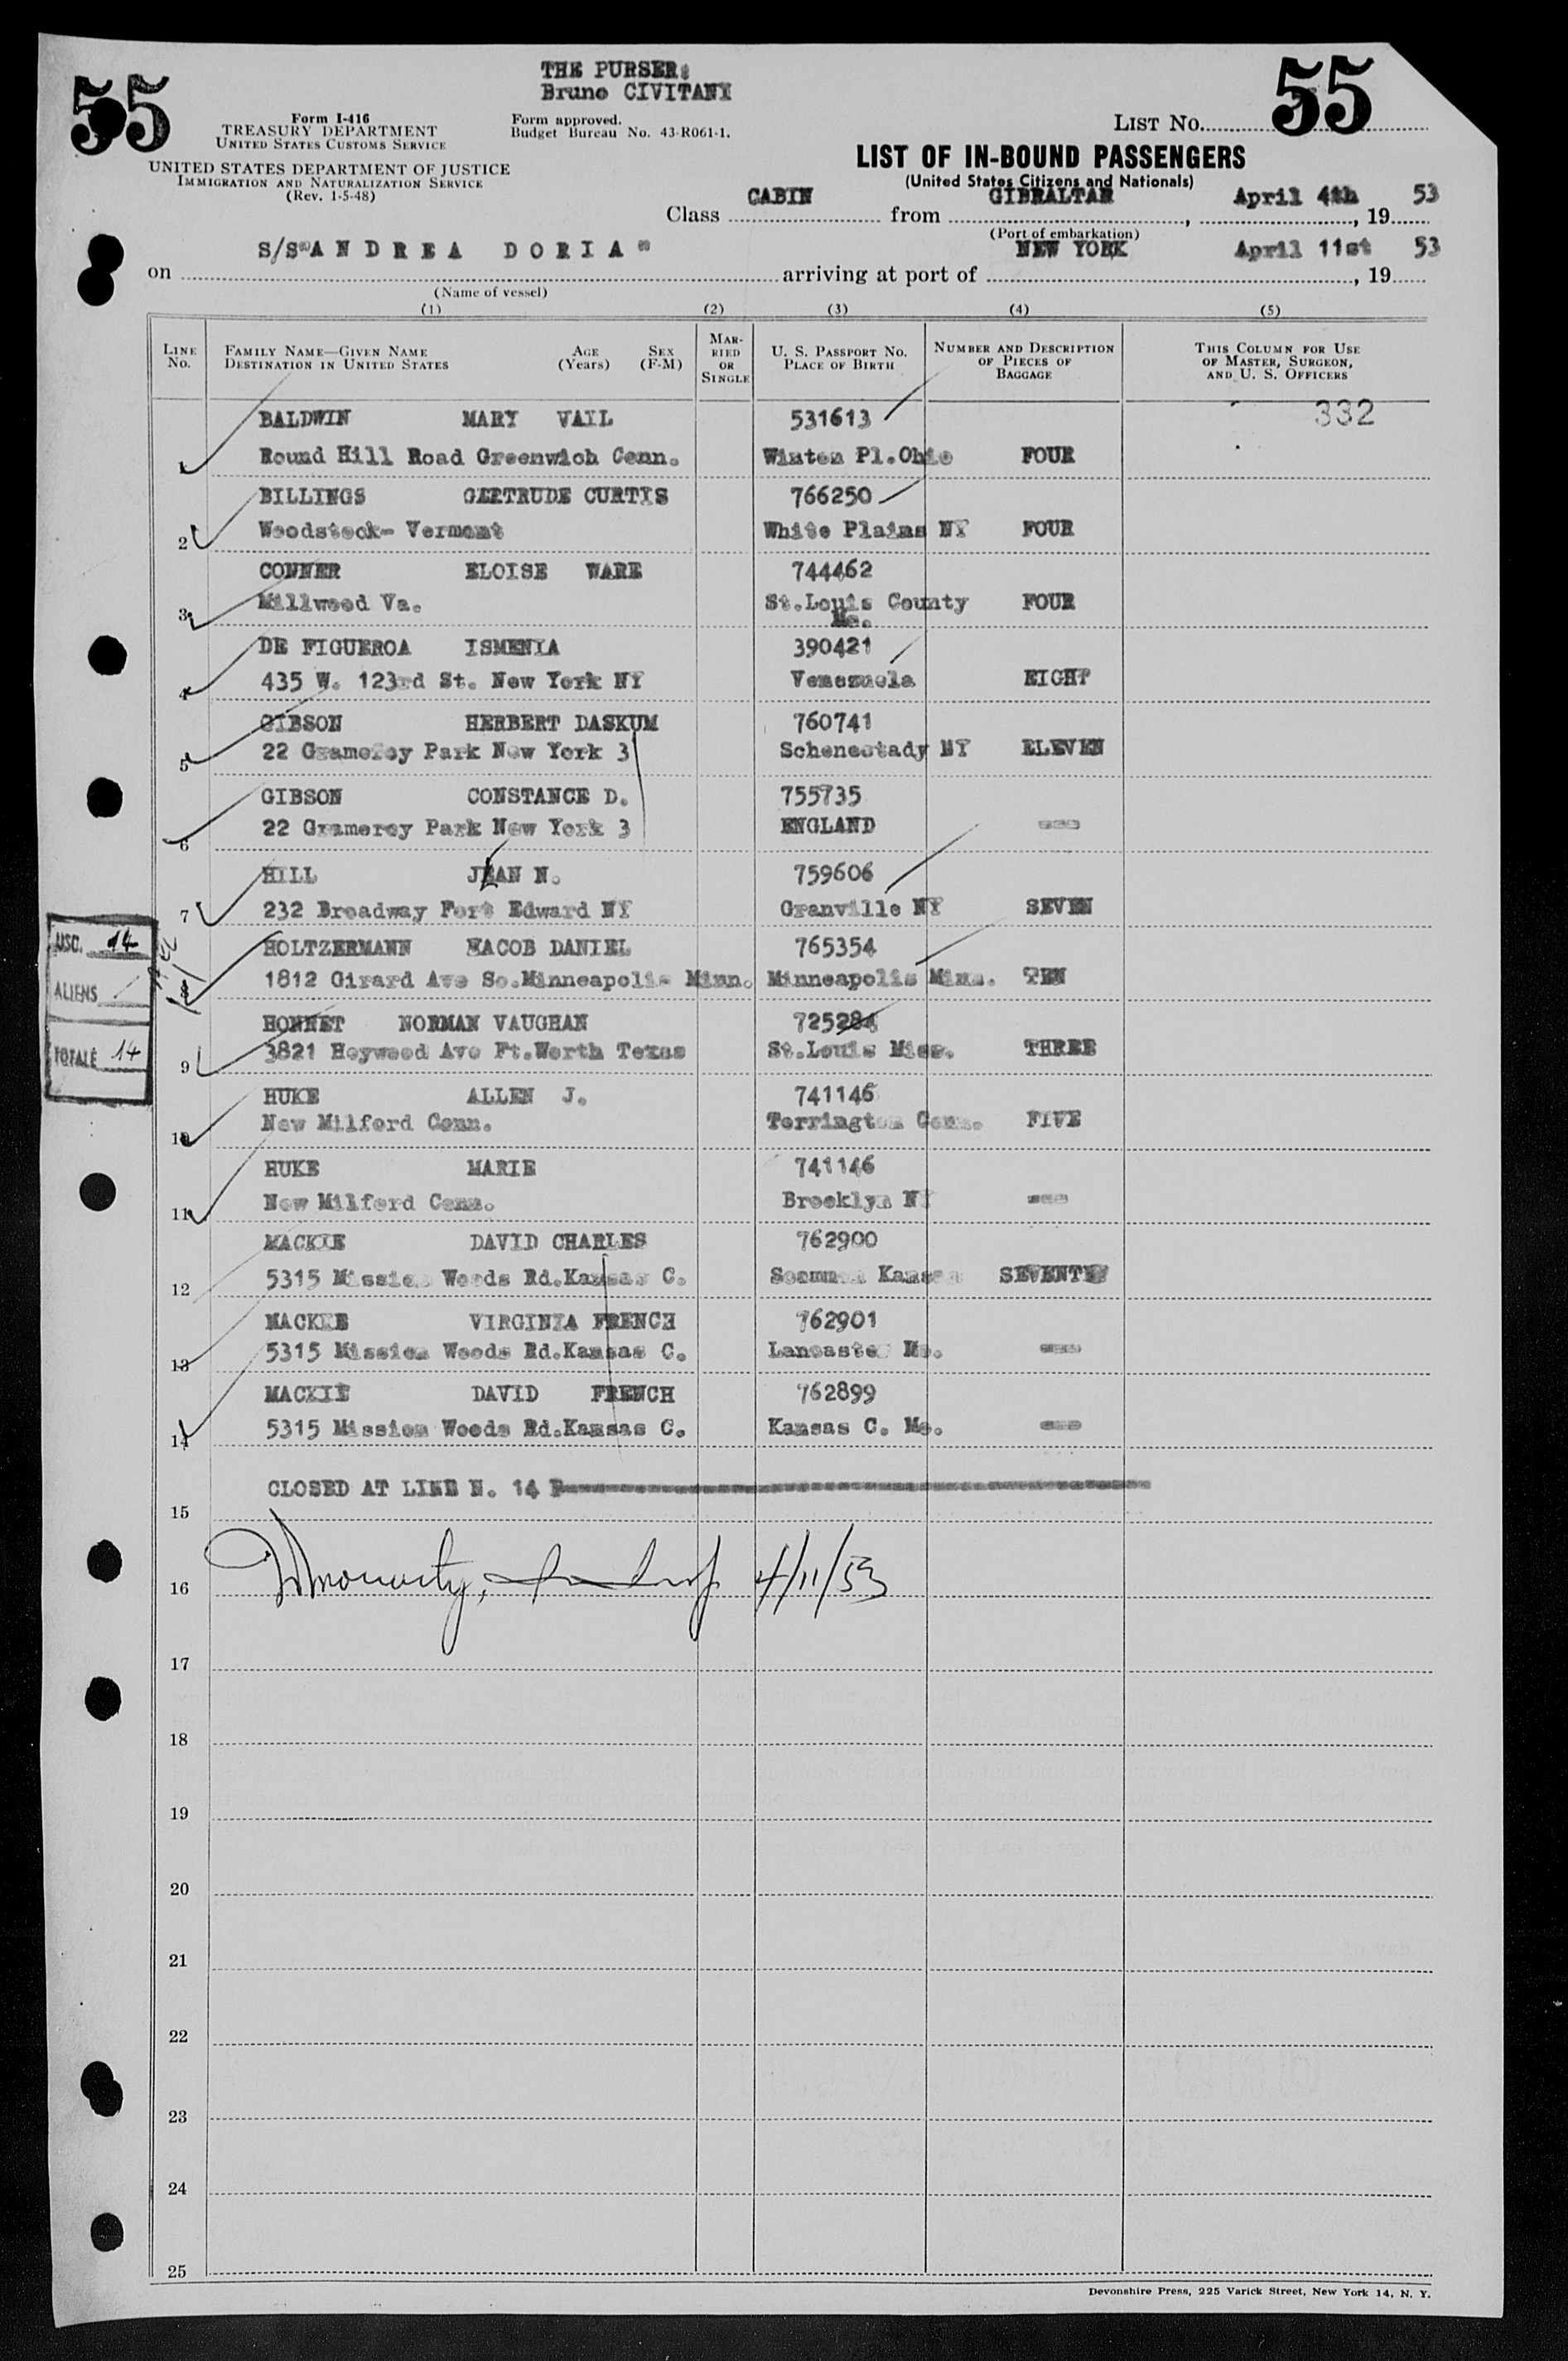 55
THE PURSER:
Bruno CIVITANI
55
Form I-416
TREASURY DEPARTMENT
UNITED STATES CUSTOMS SERVICE
Form approved.
Budget Bureau No. 43-R061-1.
LIST NO.
UNITED STATES DEPARTMENT OF JUSTICE
IMMIGRATION AND NATURALIZATION SERVICE
(Rev. 1-5-48)
LIST OF IN-BOUND PASSENGERS
(United States Citizens and Nationals)
Class CABIN from GIBRALTAR, April 4th, 1953
(Port of embarkation)
on S/S "ANDREA DORIA" arriving at port of NEW YORK April 11st, 1953
(Name of vessel)
(1) (2) (3) (4) (5)
LINE NO. FAMILY NAME—GIVEN NAME DESTINATION IN UNITED STATES AGE (Years) SEX (F-M) MARRIED OR SINGLE U. S. PASSPORT NO. PLACE OF BIRTH NUMBER AND DESCRIPTION OF PIECES OF BAGGAGE THIS COLUMN FOR USE OF MASTER, SURGEON, AND U. S. OFFICERS
BALDWIN MARY VAIL 531613 332
1 Round Hill Road Greenwich Conn. Winton Pl.Ohio FOUR
BILLINGS GERTRUDE CURTIS 766250
2 Woodstock- Vermont White Plains NY FOUR
CONNER ELOISE WARE 744462
3 Millwood Va. St.Louis County Mo. FOUR
DE FIGUEROA ISMENIA 390421
4 435 W. 123rd St. New York NY Venezuela EIGHT
GIBSON HERBERT DASKUM 760741
5 22 Gramercy Park New York 3 Schenectady NY ELEVEN
GIBSON CONSTANCE D. 755735
6 22 Gramercy Park New York 3 ENGLAND ---
HILL JEAN N. 759606
7 232 Broadway Fort Edward NY Granville NY SEVEN
HOLTZERMANN JACOB DANIEL 765354
8 1812 Girard Ave So.Minneapolis Minn. Minneapolis Minn. TEN
HONNET NORMAN VAUGHAN 725284
9 3821 Heywood Ave Ft.Worth Texas St.Louis Miss. THREE
HUKE ALLEN J. 741146
10 New Milford Conn. Torrington Conn. FIVE
HUKE MARIE 741146
11 New Milford Conn. Brooklyn NY ---
MACKIE DAVID CHARLES 762900
12 5315 Mission Woods Rd.Kansas C. Kansas
MACKIE VIRGINIA FRENCH 762901
13 5315 Mission Woods Rd.Kansas C. Lancaster Mo. ---
MACKIE DAVID FRENCH 762899
14 5315 Mission Woods Rd.Kansas C. Kansas C. Mo. ---
CLOSED AT LINE N. 14
15
16 4/11/53
17
18
19
20
21
22
23
24
25
USC. 14
ALIENS /
TOTALE 14
Devonshire Press, 225 Varick Street, New York 14, N. Y.